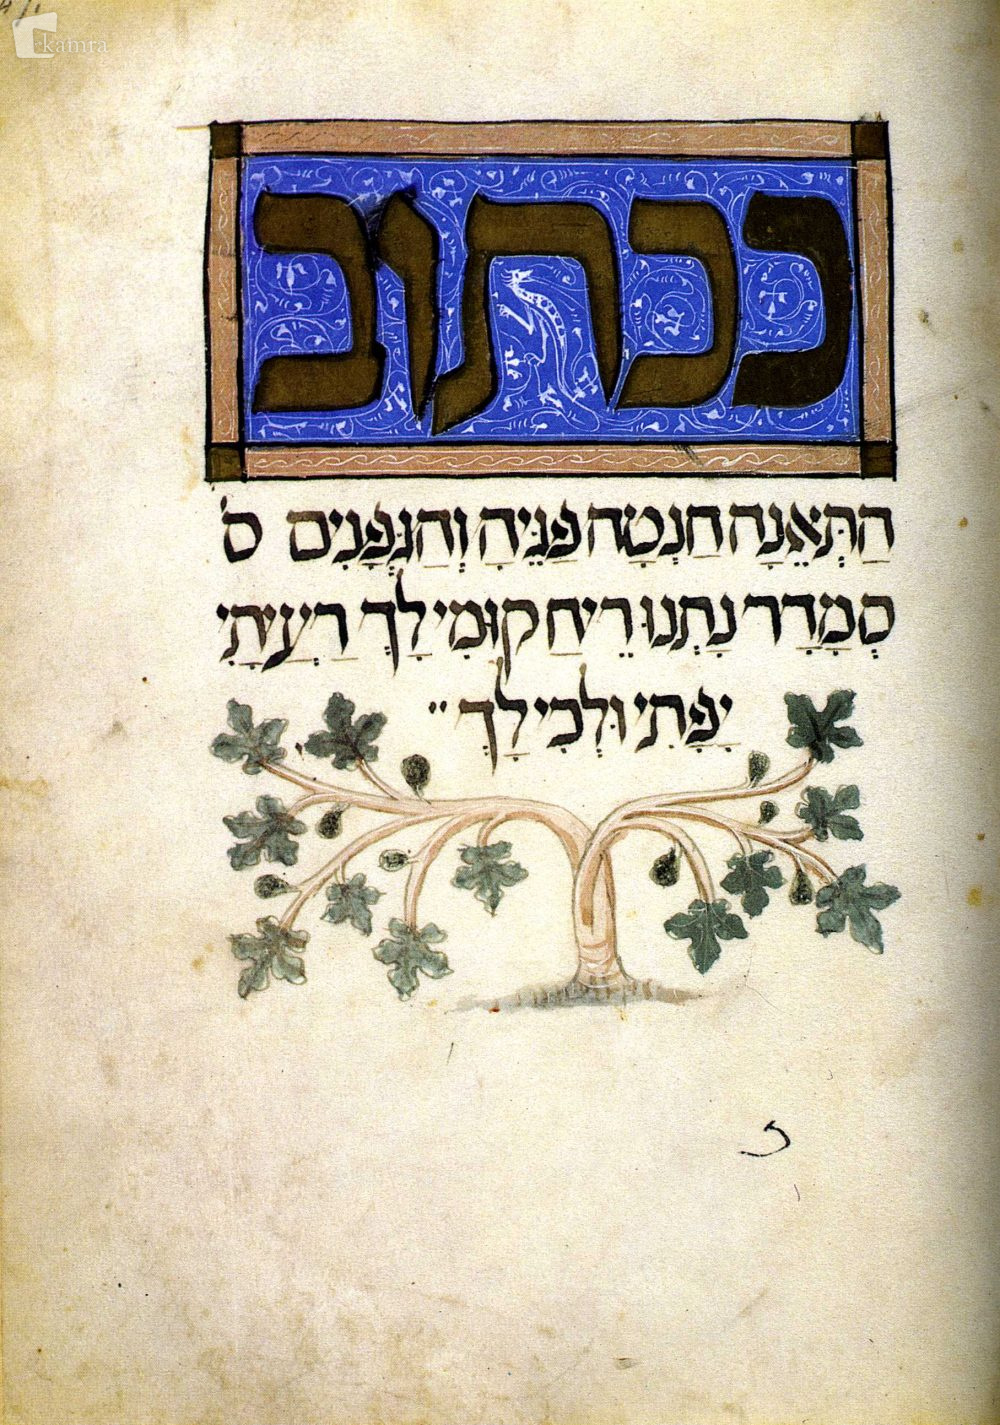 kamra
ככתוב
הַתְּאֵנָה חַנְטָה פַגֵּיהָ וְהַגְּפָנִים ס'
סְמָדַר נָתְנוּ רֵיחַ קוּמִי לָךְ רַעְיָתִי
יָפָתִי וּלְכִי לָךְ